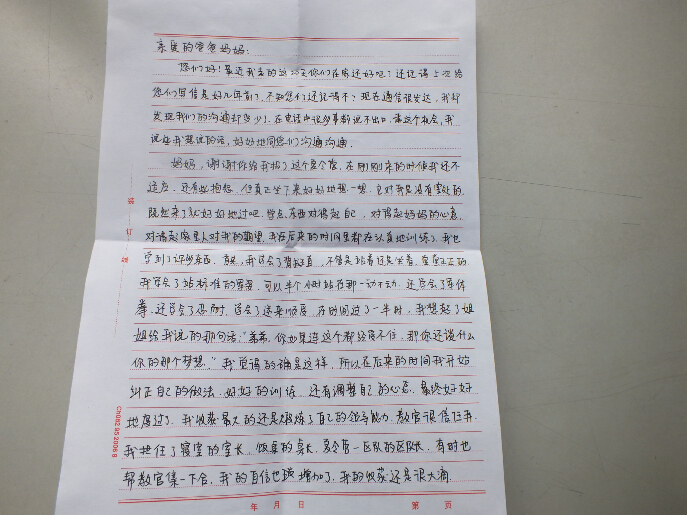 亲爱的爸爸妈妈:
您们好!最近我走的这   天你们在家还好吧?还记得上次给
您们写信是好几年前了,不知您们还记得不?现在通信很发达,我却
发现我们的沟通却变少了。在电话中很多事都说不出口,凑这个机会,我
说些我想说的话,好好地同您们沟通沟通。
妈妈,谢谢你给我报了这个夏令营,在刚刚来的时候我还不
适应,还有些抱怨,但真正坐下来好好地想一想,它对我是没有害处的,
既然来了就好好地过吧,学点东西对得起自己,对得起妈妈的心意,
对得起家里人对我的期望,我在后来的时间里都在认真地训练了,我也
学到了许多东西,首先,我学会了   ,不管是站着还是坐着,   正正的
我学会了站标准的军姿,可以半个小时站在那一动不动,还学会了军体
拳,还学会了忍耐,学会了逆来顺受,在时间过了一半时,我想起了姐
姐给我说的那句话:"弟弟,你如果连这个都经受不住,那你还谈什么
你的那个梦想。"我觉得的确是这样,所以在后来的时间我开始
纠正自己的做法,好好的训练,还有调整自己的心态,最终好好
地度过了,我收获最大的还是锻炼了自己的领导能力,教官很信任我,
我担任了寝室的室长,饭桌的桌长,夏令营一区队的区队长,有时也
帮教官集一下合,我的自信也   增加了,我的收获还是很大滴。
装
订
线
CN08295 2006 9
年 月 日 第 页